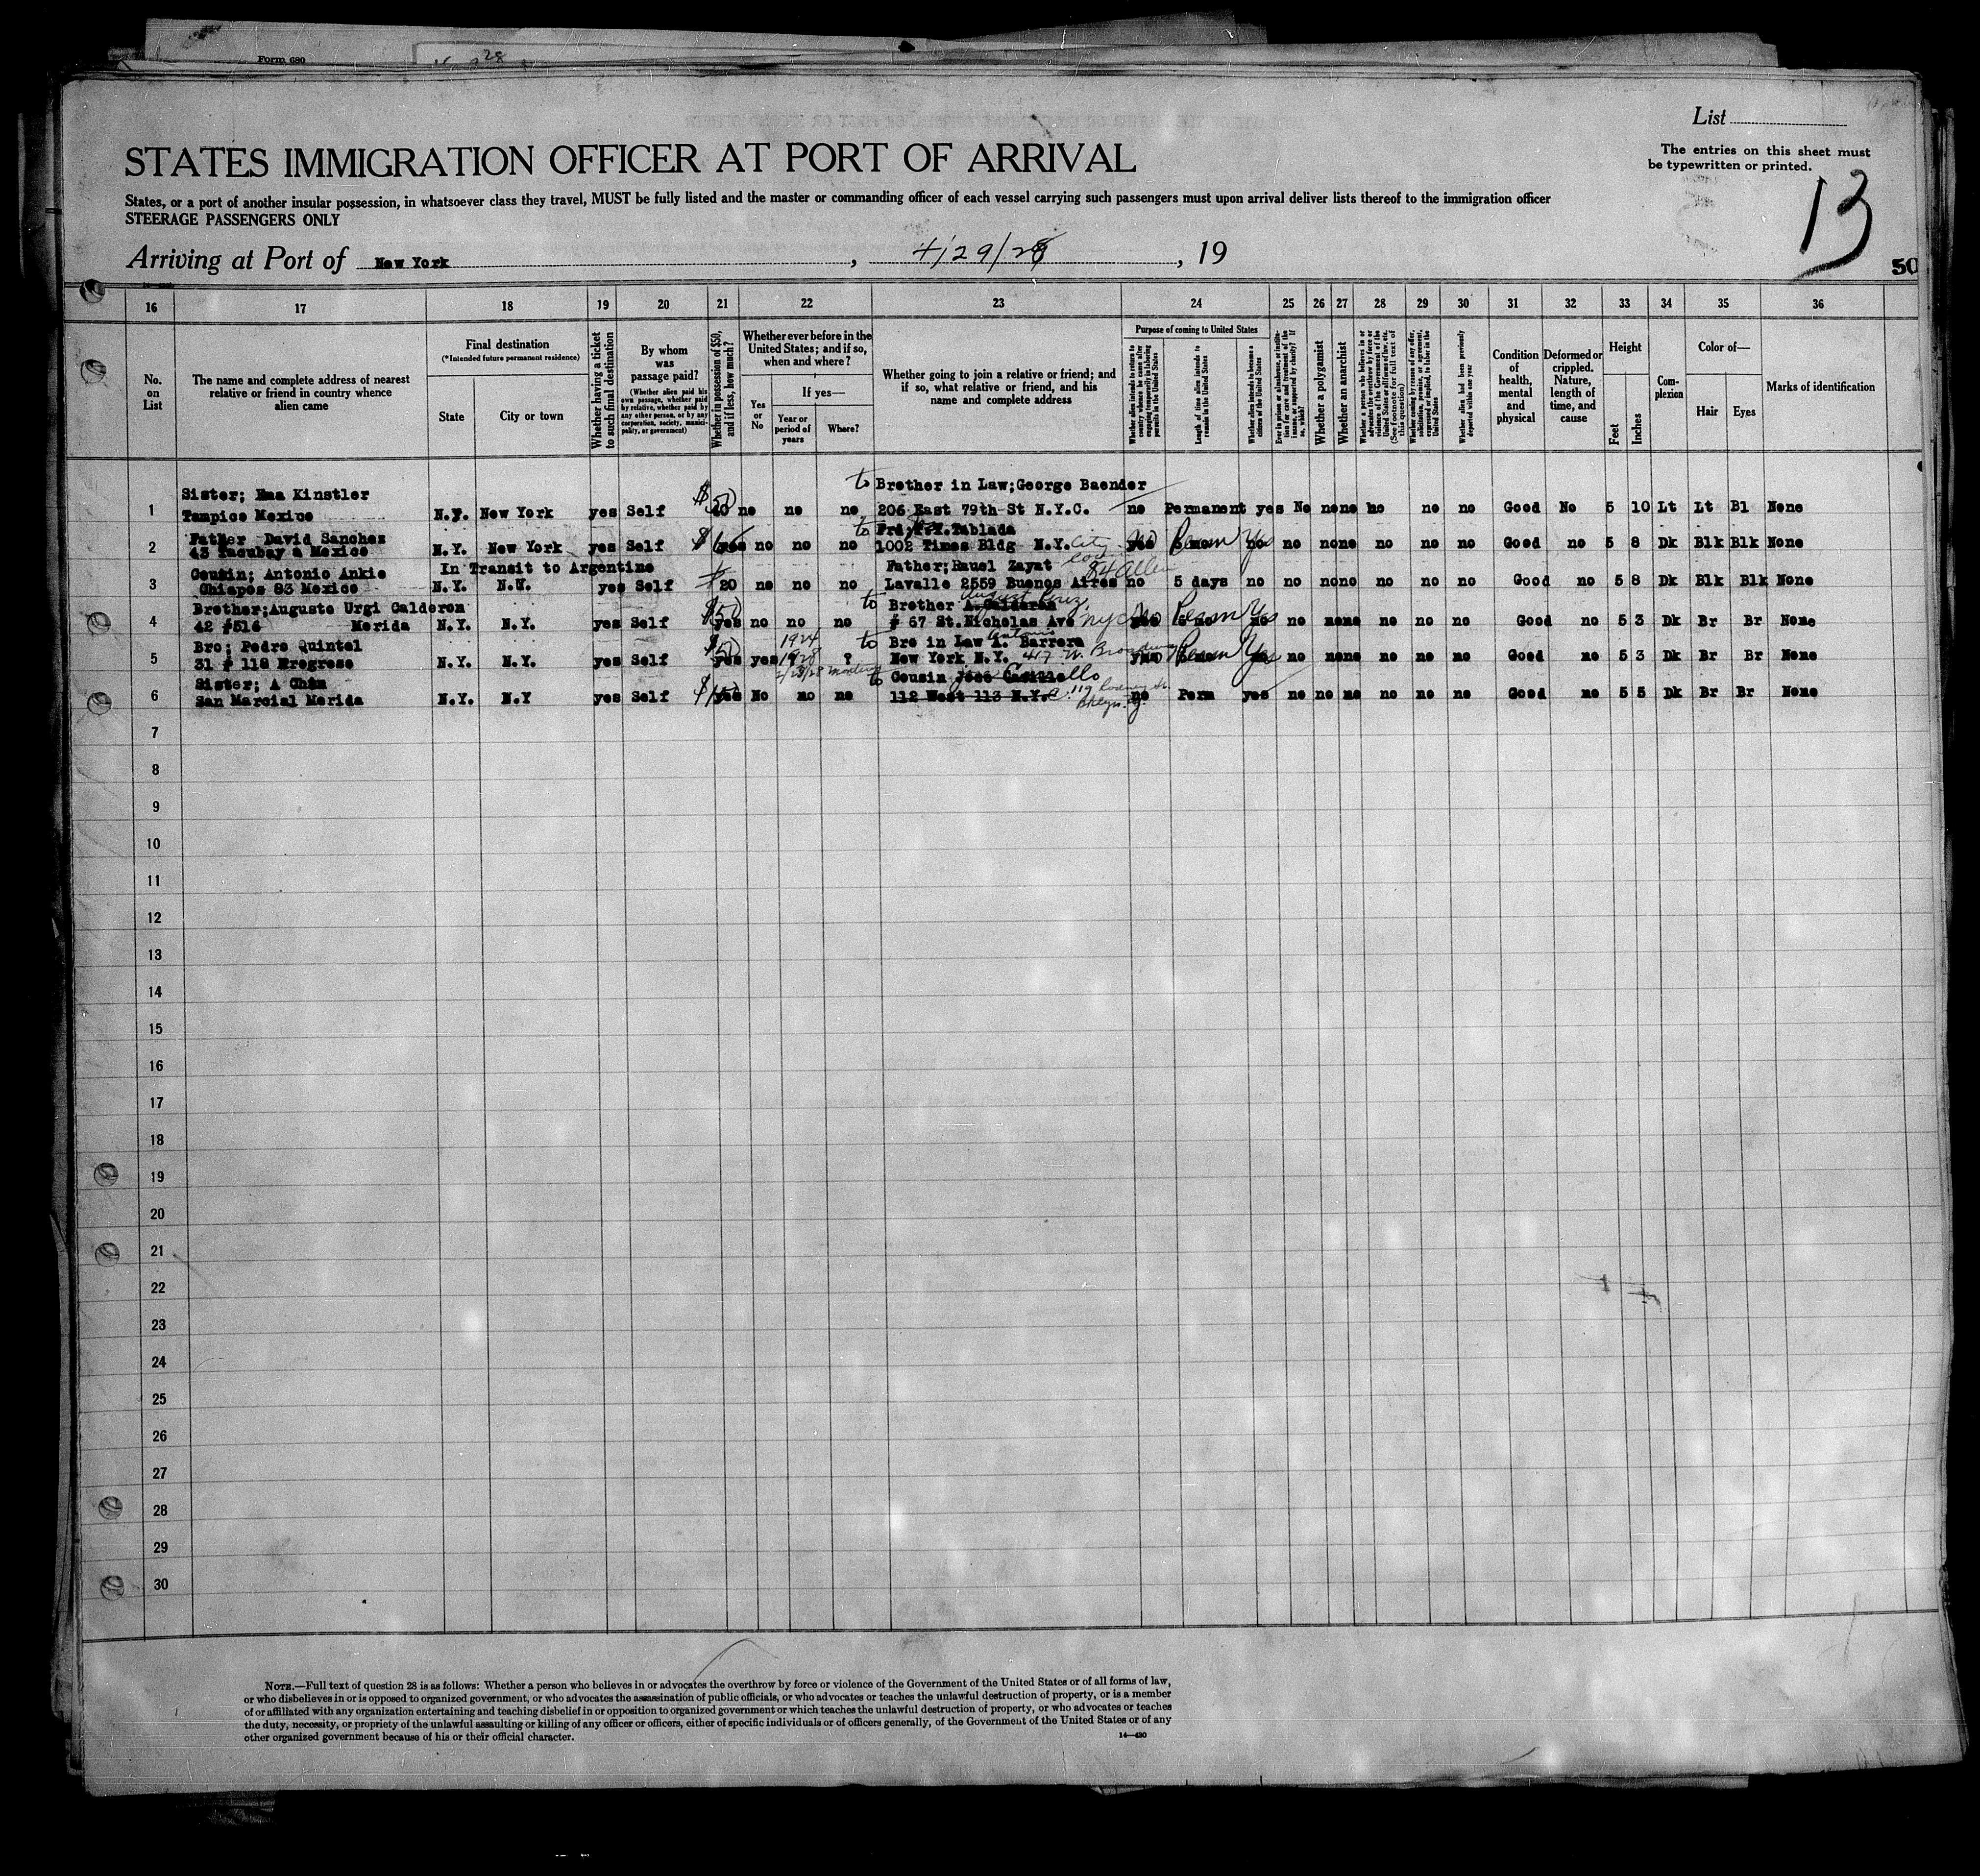 Form 680
List
STATES IMMIGRATION OFFICER AT PORT OF ARRIVAL
The entries on this sheet must
be typewritten or printed.
States, or a port of another insular possession, in whatsoever class they travel, MUST be fully listed and the master or commanding officer of each vessel carrying such passengers must upon arrival deliver lists thereof to the immigration officer
STEERAGE PASSENGERS ONLY
13
Arriving at Port of New York, 4/29/28, 19
50
16 17 18 19 20 21 22 23 24 25 26 27 28 29 30 31 32 33 34 35 36
No. on List
The name and complete address of nearest relative or friend in country whence alien came
Final destination
(*Intended future permanent residence)
State
City or town
Whether having a ticket to such final destination
By whom was passage paid?
(Whether alien paid his own passage, whether paid by relative, whether paid by any other person, or by any corporation, society, municipality, or government)
Whether in possession of $50, and if less, how much?
Whether ever before in the United States; and if so, when and where?
Yes or No
If yes—
Year or period of years
Where?
Whether going to join a relative or friend; and if so, what relative or friend, and his name and complete address
Purpose of coming to United States
Whether alien intends to return to country whence he came after engaging temporarily in laboring pursuits in the United States
Length of time alien intends to remain in the United States
Whether alien intends to become a citizen of the United States
Whether a polygamist
Whether an anarchist
(See footnote for full text of this question)
Whether alien had been previously deported within one year
Condition of health, mental and physical
Deformed or crippled. Nature, length of time, and cause
Height
Feet
Inches
Complexion
Color of—
Hair
Eyes
Marks of identification
Sister; Ema Kinstler to Brother in Law;George Baender
1 Tampico Mexico N.Y. New York yes Self $50 no no no 206 East 79th St N.Y.C. no Permanent yes No none no no no Good No 5 10 Lt Lt Bl None
Father David Sanchez to Tablada
2 43 Tacubay a Mexico N.Y. New York yes Self yes no no no 1002 Times Bldg N.Y. City no Perm Yes no none no no no Good no 5 8 Dk Blk Blk None
Cousin; Antonio Ankie In Transit to Argentine Father; Zayat
3 Chiapos 83 Mexico N.Y. yes Self 20 no no no Lavalle 2559 Buenos Aires no 5 days no no none no no no Good no 5 8 Dk Blk Blk None
Brother;Auguste Urgi Calderon to Brother A. Calderon August Perez
4 42 #516 Merida N.Y. N.Y. yes Self $50 yes no no no # 67 St.Nicholas Ave NYC no Perm Yes no none no no no Good no 5 3 Dk Br Br None
Bro; Pedro Quintel 1924 1928 to Bro in Law A. Barrera Antonio
5 31 # 118 Progreso N.Y. N.Y. yes Self $50 yes yes ? New York N.Y. 417 W. Broadway no Perm Yes no none no no no Good no 5 3 Dk Br Br None
Sister; A Chim to Cousin José Castillo
6 San Marcial Merida N.Y. N.Y yes Self $150 yes No no no 112 West 113 N.Y.C. 119 Bklyn. no Perm yes no no no no no no Good no 5 5 Dk Br Br None
7
8
9
10
11
12
13
14
15
16
17
18
19
20
21
22
23
24
25
26
27
28
29
30
NOTE.—Full text of question 28 is as follows: Whether a person who believes in or advocates the overthrow by force or violence of the Government of the United States or of all forms of law,
or who disbelieves in or is opposed to organized government, or who advocates the assassination of public officials, or who advocates or teaches the unlawful destruction of property, or is a member
of or affiliated with any organization entertaining and teaching disbelief in or opposition to organized government or which teaches the unlawful destruction of property, or who advocates or teaches
the duty, necessity, or propriety of the unlawful assaulting or killing of any officer or officers, either of specific individuals or of officers generally, of the Government of the United States or of any
other organized government because of his or their official character.
14—430